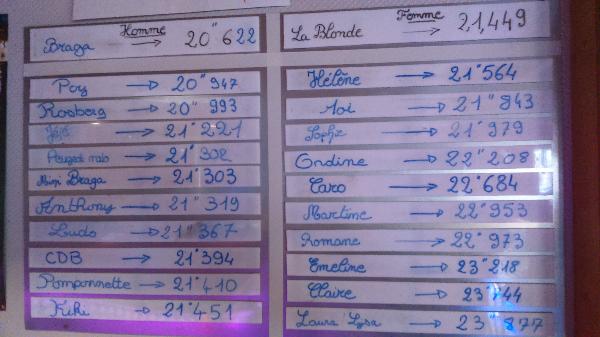 Homme
Braga → 20"622
Poy → 20"947
Rosberg → 20"993
Jojo → 21"221
Peugeot → 21"302
Mimi Braga → 21"303
Anthony → 21"319
Ludo → 21"367
CDB → 21"394
Pomponnette → 21"410
Kiki → 21"451
Femme
La Blonde → 21,449
Hélène → 21"564
→ 21"843
Sophie → 21"979
Ondine → 22"208
Caro → 22"684
Martine → 22"953
Romane → 22"973
Emeline → 23"218
Claire → 23"
Laura Lysa → 23"877